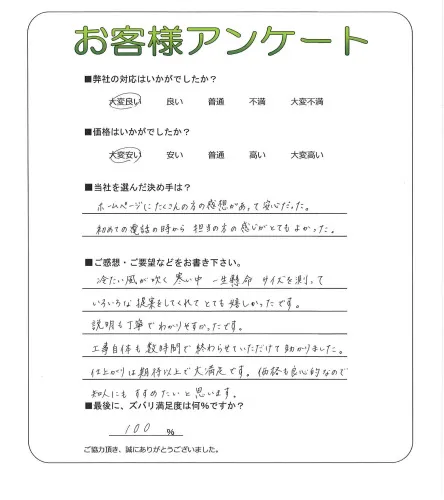 お客様アンケート
■弊社の対応はいかがでしたか？
大変良い 良い 普通 不満 大変不満
■価格はいかがでしたか？
大変安い 安い 普通 高い 大変高い
■当社を選んだ決め手は？
ホームページにたくさんの方の感想があって安心だった。
初めての電話の時から 担当の方の感じがとてもよかった。
■ご感想・ご要望などをお書き下さい。
冷たい風が吹く寒い中 一生懸命 サイズを測って
いろいろな提案をしてくれてとても嬉しかったです。
説明も丁寧でわかりやすかったです。
工事自体も数時間で終わらせていただけて助かりました。
仕上がりは期待以上で大満足です。価格も良心的なので
知人にもすすめたいと思います。
■最後に、ズバリ満足度は何％ですか？
100 ％
ご協力頂き、誠にありがとうございました。